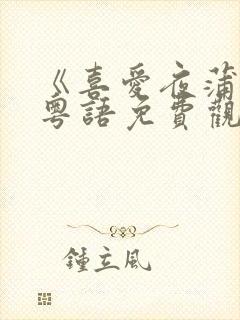 《喜愛夜蒲
粵語免費觀
鍾立風